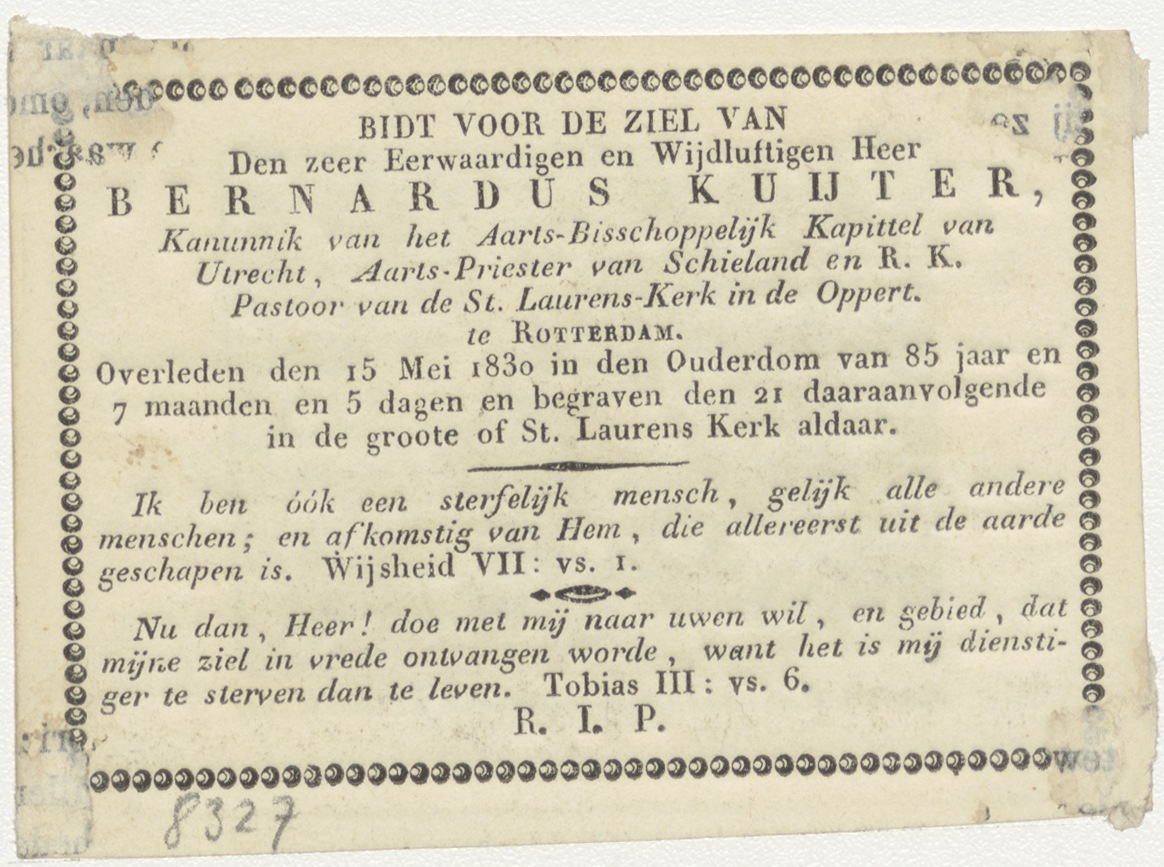 BIDT VOOR DE ZIEL VAN
Den zeer Eerwaardigen en Wijdluftigen Heer
BERNARDUS KUIJTER,
Kanunnik van het Aarts-Bisschoppelijk Kapittel van
Utrecht, Aarts-Priester van Schieland en R. K.
Pastoor van de St. Laurens-Kerk in de Oppert.
te ROTTERDAM.
Overleden den 15 Mei 1830 in den Ouderdom van 85 jaar en
7 maanden en 5 dagen en begraven den 21 daaraanvolgende
in de groote of St. Laurens Kerk aldaar.
Ik ben óók een sterfelijk mensch, gelijk alle andere
menschen; en afkomstig van Hem, die allereerst uit de aarde
geschapen is. Wijsheid VII: vs. 1.
Nu dan, Heer! doe met mij naar uwen wil, en gebied, dat
mijne ziel in vrede ontvangen worde, want het is mij diensti-
ger te sterven dan te leven. Tobias III: vs. 6.
R. I. P.
8327